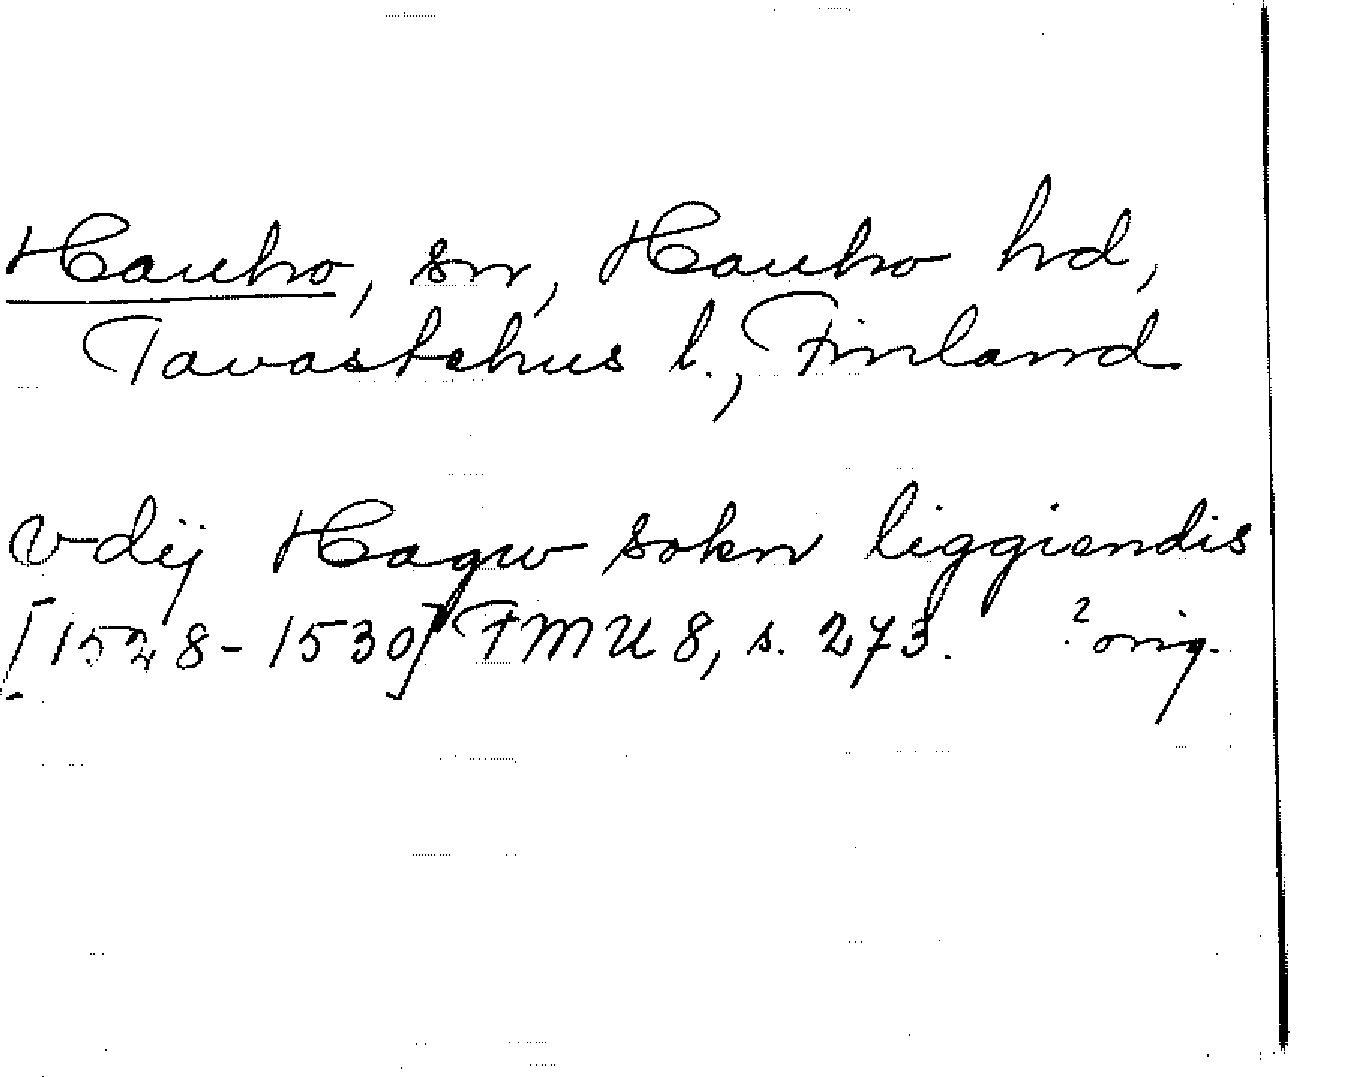 Hauho, sn, Hauho hd,
Tavastehus l., Finland
vdij Hagw sokn liggiendis
[1528-1530] FMU 8, s. 273. ? orig.